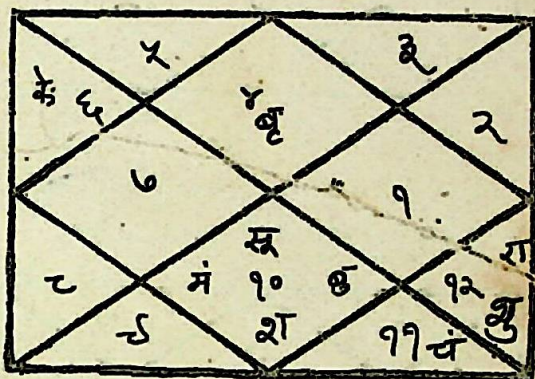 ५ ३
के ६ ४ बृ २
७ १
सू रा
८ मं १० बु १२ शु
९ श ११ चं